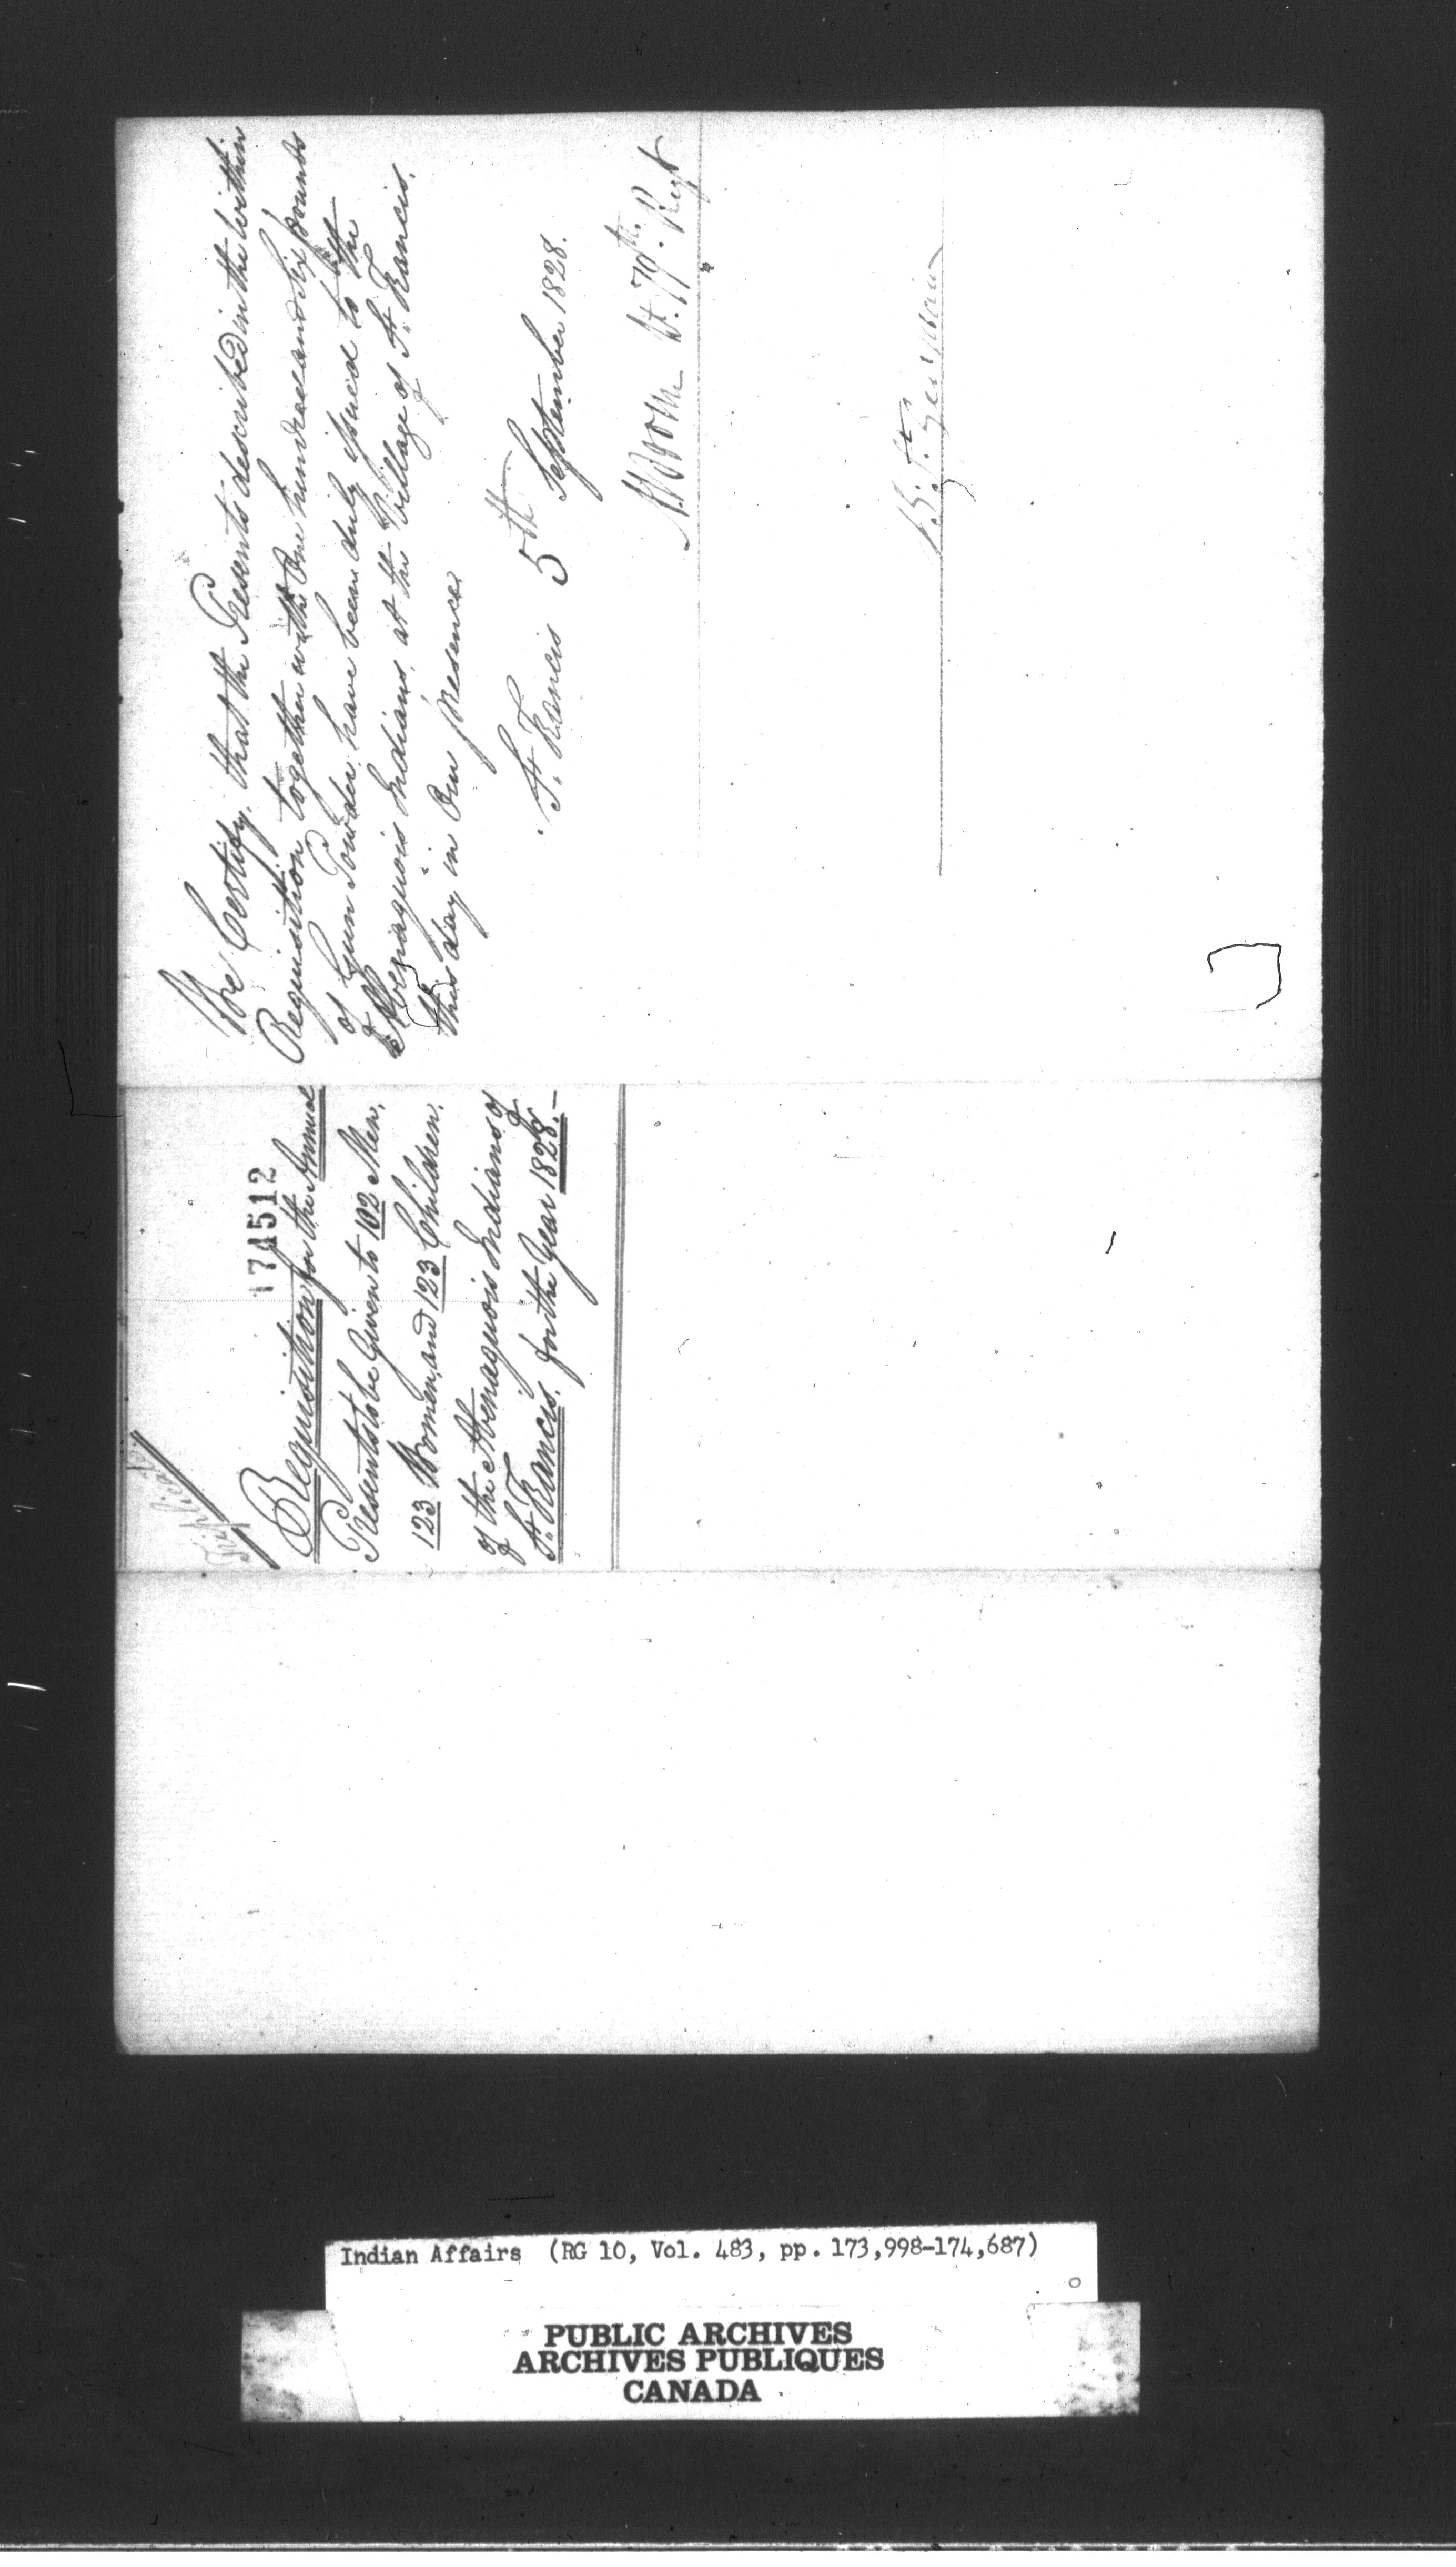 We Certify, that the Presents described in the within
Requisition together with One hundred and six pounds
of Gun Powder, have been duly issued to the
Abenaquois Indians, at the Village of St. Francis,
this day in Our presence
St. Francis 5th September 1828.
Lt. 70th. Regt
St. Germain
Triplicate
174512
Requisition for the Annual
Presents to be Given to 102 Men,
123 Women, and 123 Children.
of the Abenaquois Indians of
St. Francis, for the Year 1828.—
Indian Affairs (RG 10, Vol. 483, pp. 173,998-174,687)
PUBLIC ARCHIVES
ARCHIVES PUBLIQUES
CANADA